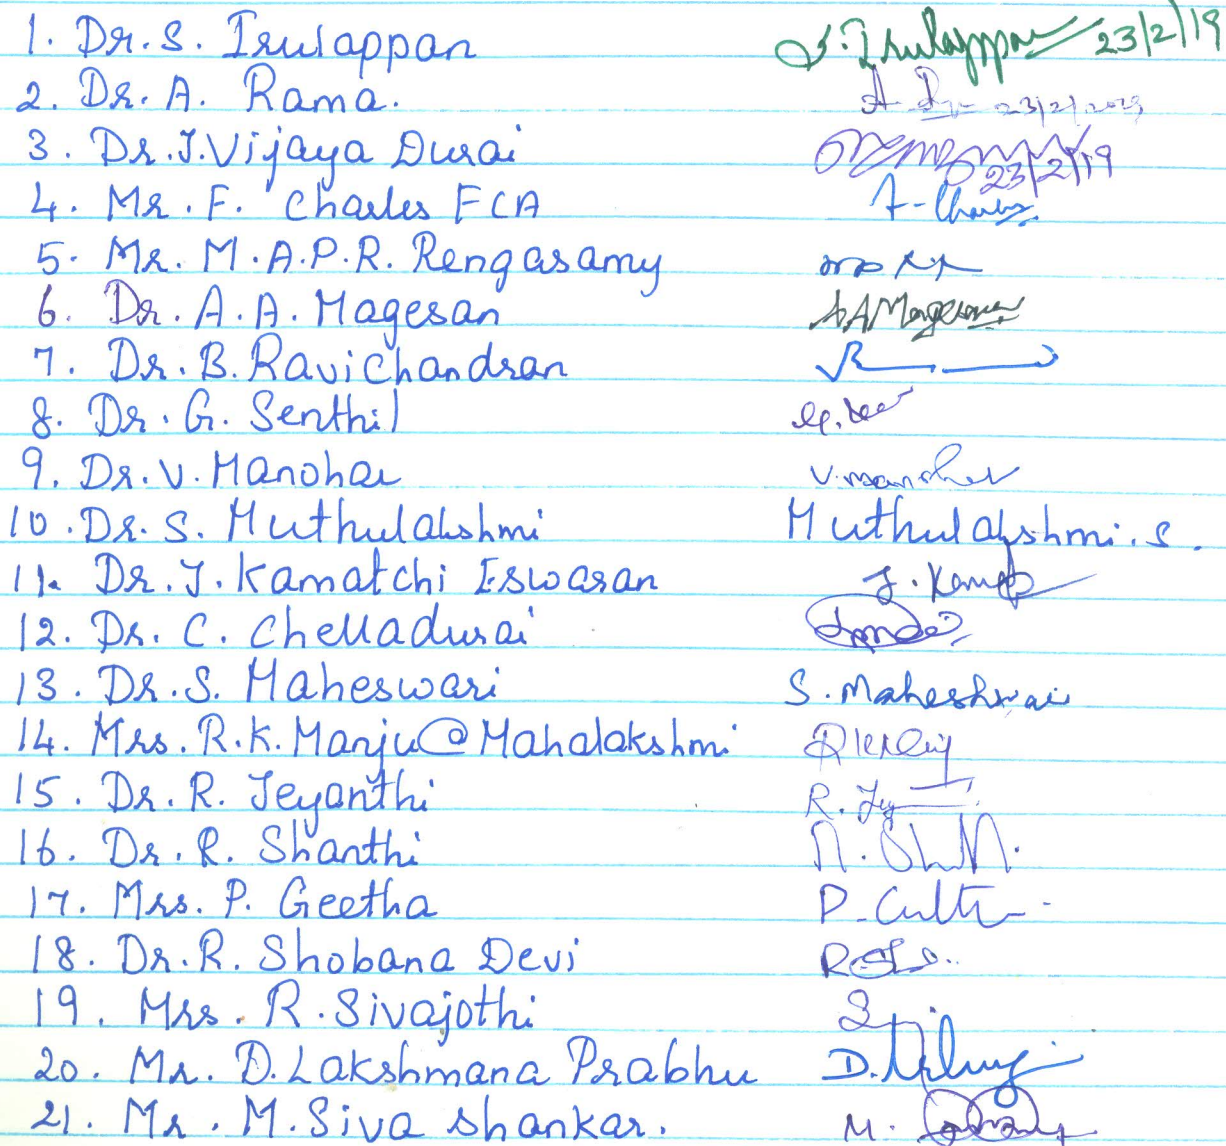 1. Dr. S. Irulappan S. Irulappan 23/2/19
2. Dr. A. Rama. 23/2/2019
3. Dr. J. Vijaya Durai 23/2/19
4. Mr. F. Charles FCA F. Charles
5. Mr. M.A.P.R. Rengasamy
6. Dr. A.A. Magesan AAMagesan
7. Dr. B. Ravichandran
8. Dr. G. Senthil
9. Dr. V. Manohar V. Manohar
10. Dr. S. Muthulakshmi Muthulakshmi. S.
11. Dr. J. Kamatchi Eswaran
12. Dr. C. Chelladurai
13. Dr. S. Maheswari S. Maheshwari
14. Mrs. R.K. Manju@Mahalakshmi
15. Dr. R. Jeyanthi
16. Dr. R. Shanthi
17. Mrs. P. Geetha
18. Dr. R. Shobana Devi
19. Mrs. R. Sivajothi
20. Mr. D. Lakshmana Prabhu
21. Mr. M. Siva shankar.